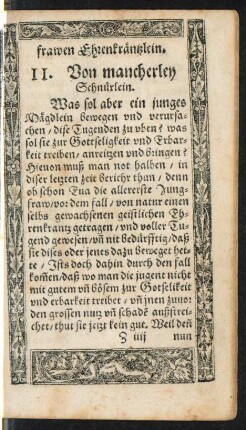 frawen Ehrenkräntzlein.
II. Von mancherley
Schnürlein.
Was sol aber ein junges
Mägdlein bewegen vnd verursa-
chen / dise Tugenden zu vben? was
sol sie zur Gottseligkeit vnd Erbar-
keit treiben / anreitzen vnd bringen?
Hieuon muß man not halben / in
diser letzten zeit bericht thun / denn
ob schon Eua die allererste Jung-
fraw / vor dem fall / von natur einen
selbs gewachsenen geistlichen Eh-
renkrantz getragen / vnd voller Tu-
gend gewesen / vñ nit bedürfftig / daß
sie dises oder jenes dazu beweget het-
te / Ists doch dahin durch den fall
kom̃en / daß wo man die jugent nicht
mit gutem vñ bösem zur Gotselikeit
vnd erbarkeit treibet / vñ jnen zuuor
den grossen nutz vñ schadẽ außstrei-
chet / thut sie jetzt kein gut. Weil deñ
Z iiij nun